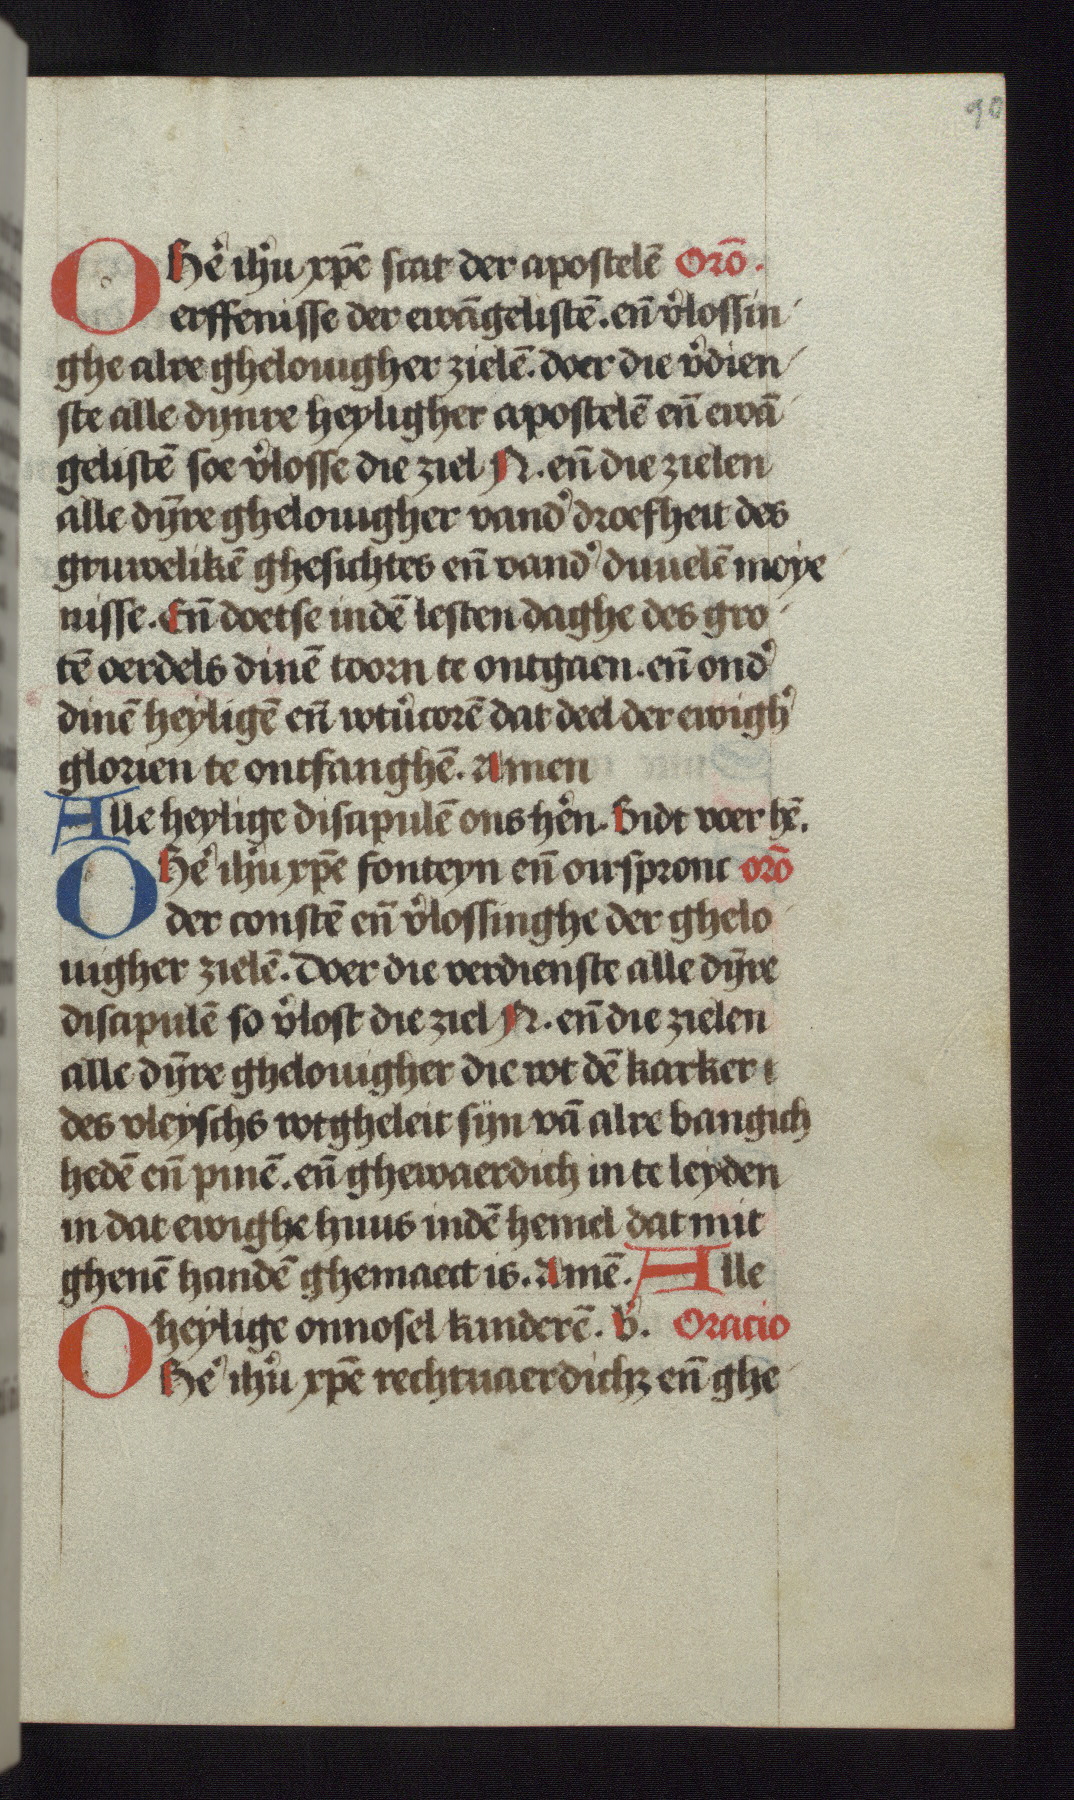 90
O Hē ihū xpē scat der apostelē Orō.
erffenisse der ewāgelistē. eñ v̾lossin
ghe alre ghelouigher zielē. doer die v̾dien
ste alle dynre heyligher apostelē eñ ewā
gelistē soe v̾losse die ziel N. eñ die zielen
alle dȳre ghelouigher vand̾ droefheit des
gruwelikē ghesichtes eñ vand̾ duuelē moye
nisse. Eñ doetse indē lesten daghe des gro
tē oerdels dinē toorn te ontgaen. eñ ond̾
dinē heyligē eñ wtu̾corē dat deel der ewigh̾
glorien te ontfanghē. Amen
Alle heylige discipulē ons hēn. Bidt voer hē.
O Hē ihū xpē fonteyn eñ oirspronc orō
der constē eñ v̾lossinghe der ghelo
uigher zielē. Doer die verdienste alle dȳre
discipulē so v̾lost die ziel N. eñ die zielen
alle dȳre ghelouigher die wt dē karker
des vleyschs wtgheleit sijn vā alre bangich
hedē eñ pinē. eñ ghewaerdich in te leyden
in dat ewighe huus indē hemel dat mit
ghenē handē ghemaect is. Amē. Alle
heylige onnosel kinderē. b. Oracio
O Hē ihū xpē rechtuaerdichꝫ eñ ghe